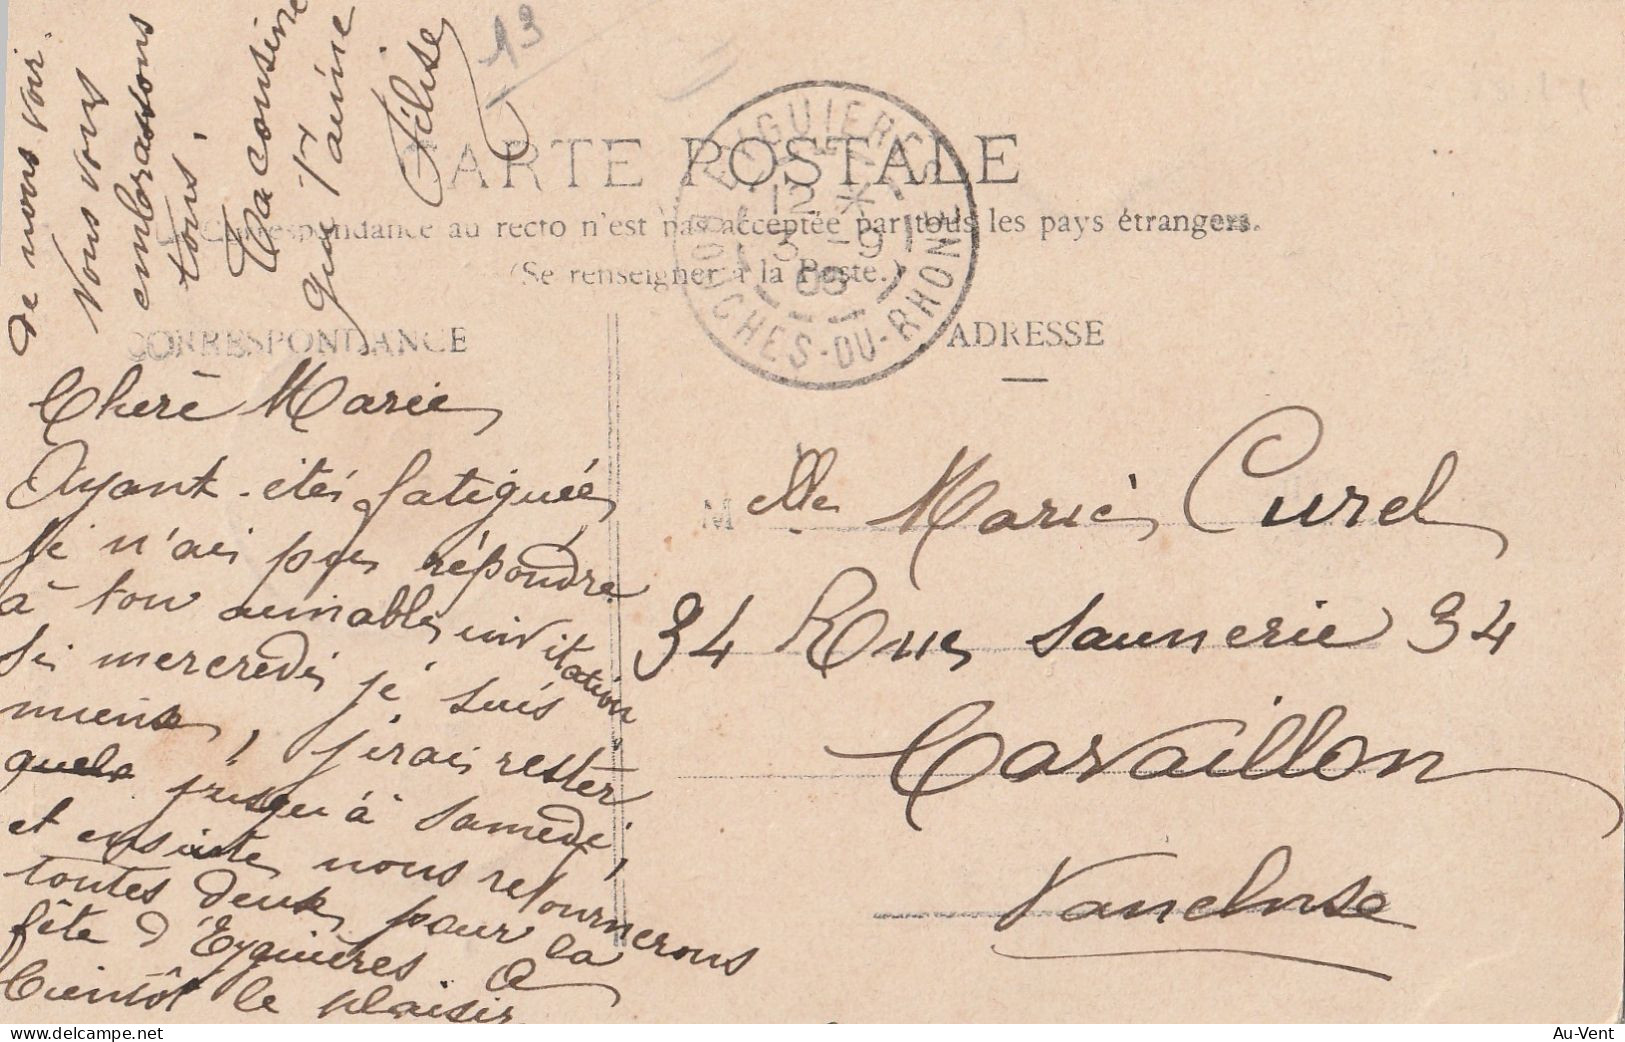 13
CARTE POSTALE
La Correspondance au recto n'est pas acceptée par tous les pays étrangers.
(Se renseigner à la Poste.)
EYGUIERES
12 *
3 -9
BOUCHES-DU-RHONE
CORRESPONDANCE
ADRESSE
Cherè Marie
Ayant étés fatiguée,
Je n'ai pus répondre
à ton aimable invitation
Si mercredi je suis
mieux, j'irai rester
jusqu'à samedi,
et ensuite nous retournerons
toutes deux pour la
fête d'Eyguières. A
bientôt le plaisir
de vous voir.
Nous vous
embrassons
tous.
Ta cousine
qui t'aime
Félise
Melle Marie Curel
34 Rue Saunerie 34
Cavaillon
Vaucluse
delcampe.net
Au-Vent